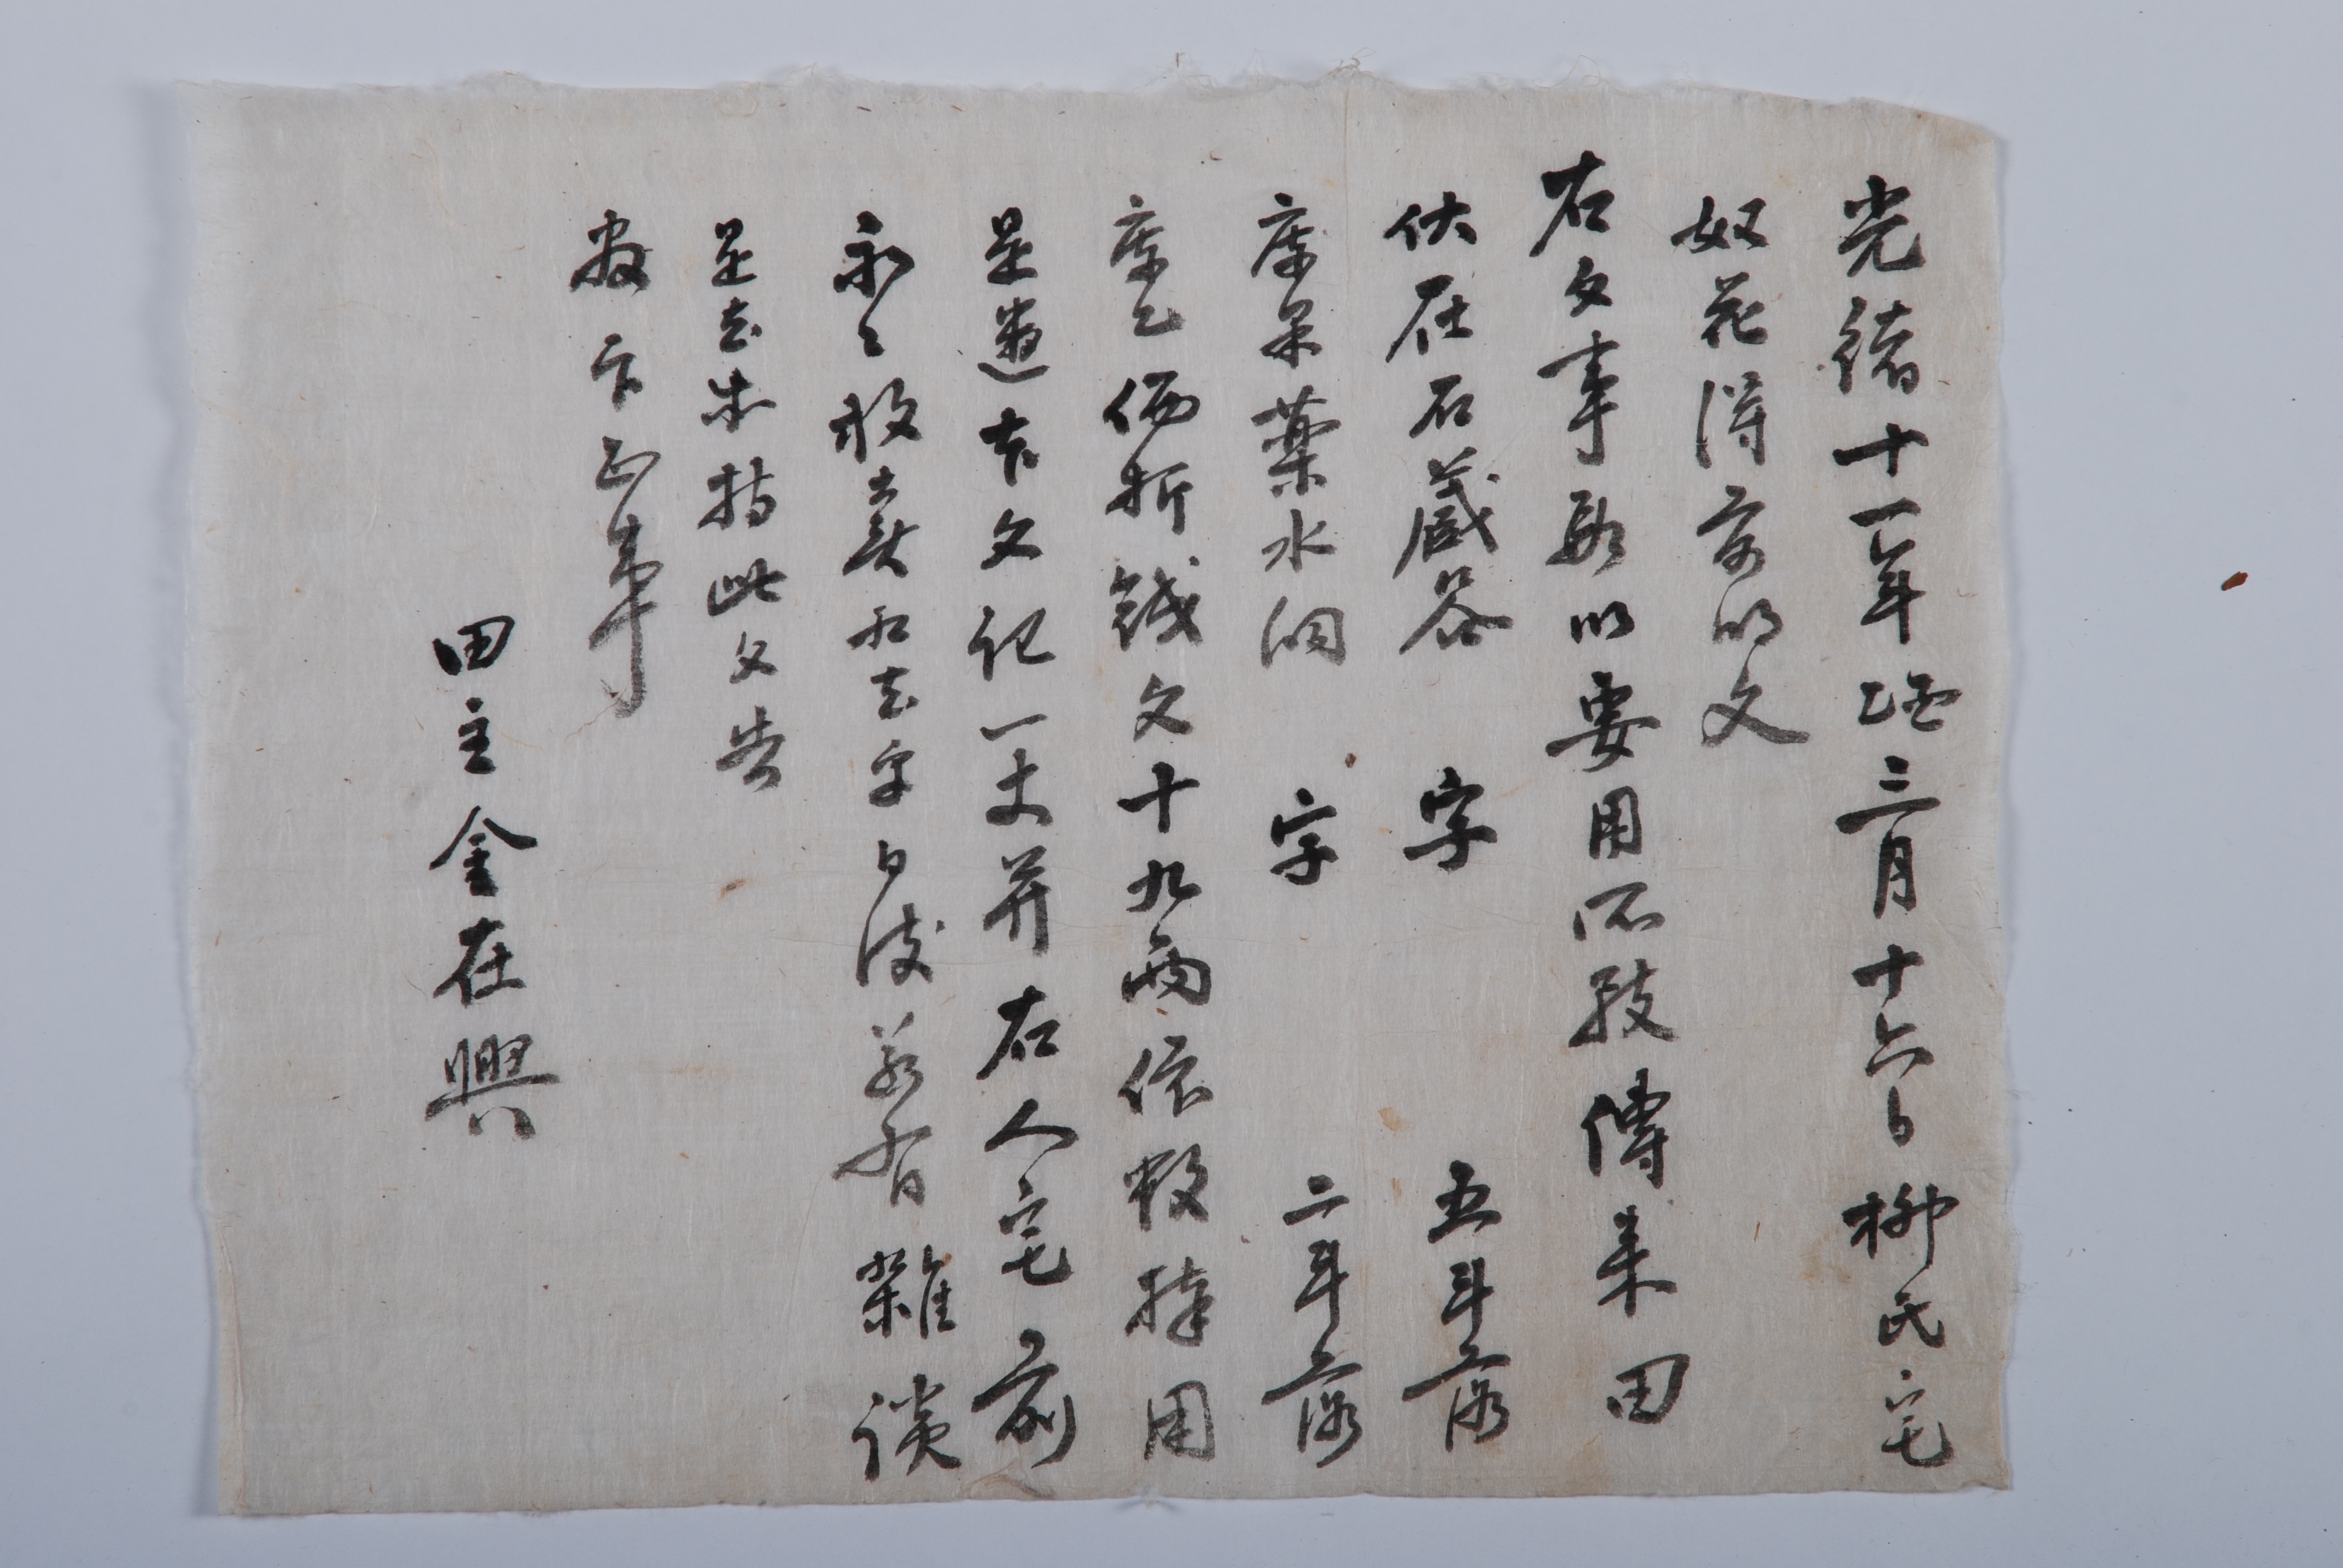 光緖十一年乙酉三月十六日柳氏宅
奴花得前明文
右文事段以要用所致傳來田
伏在石藏谷 字 五斗落
庫果藥水洞 字 二斗落
庫乙價折錢文十九兩依數捧用
是遣本文記一丈并右人宅前
永永放賣爲去乎日後若有雜談
是去等持此文告
官卞正事
田主金在興